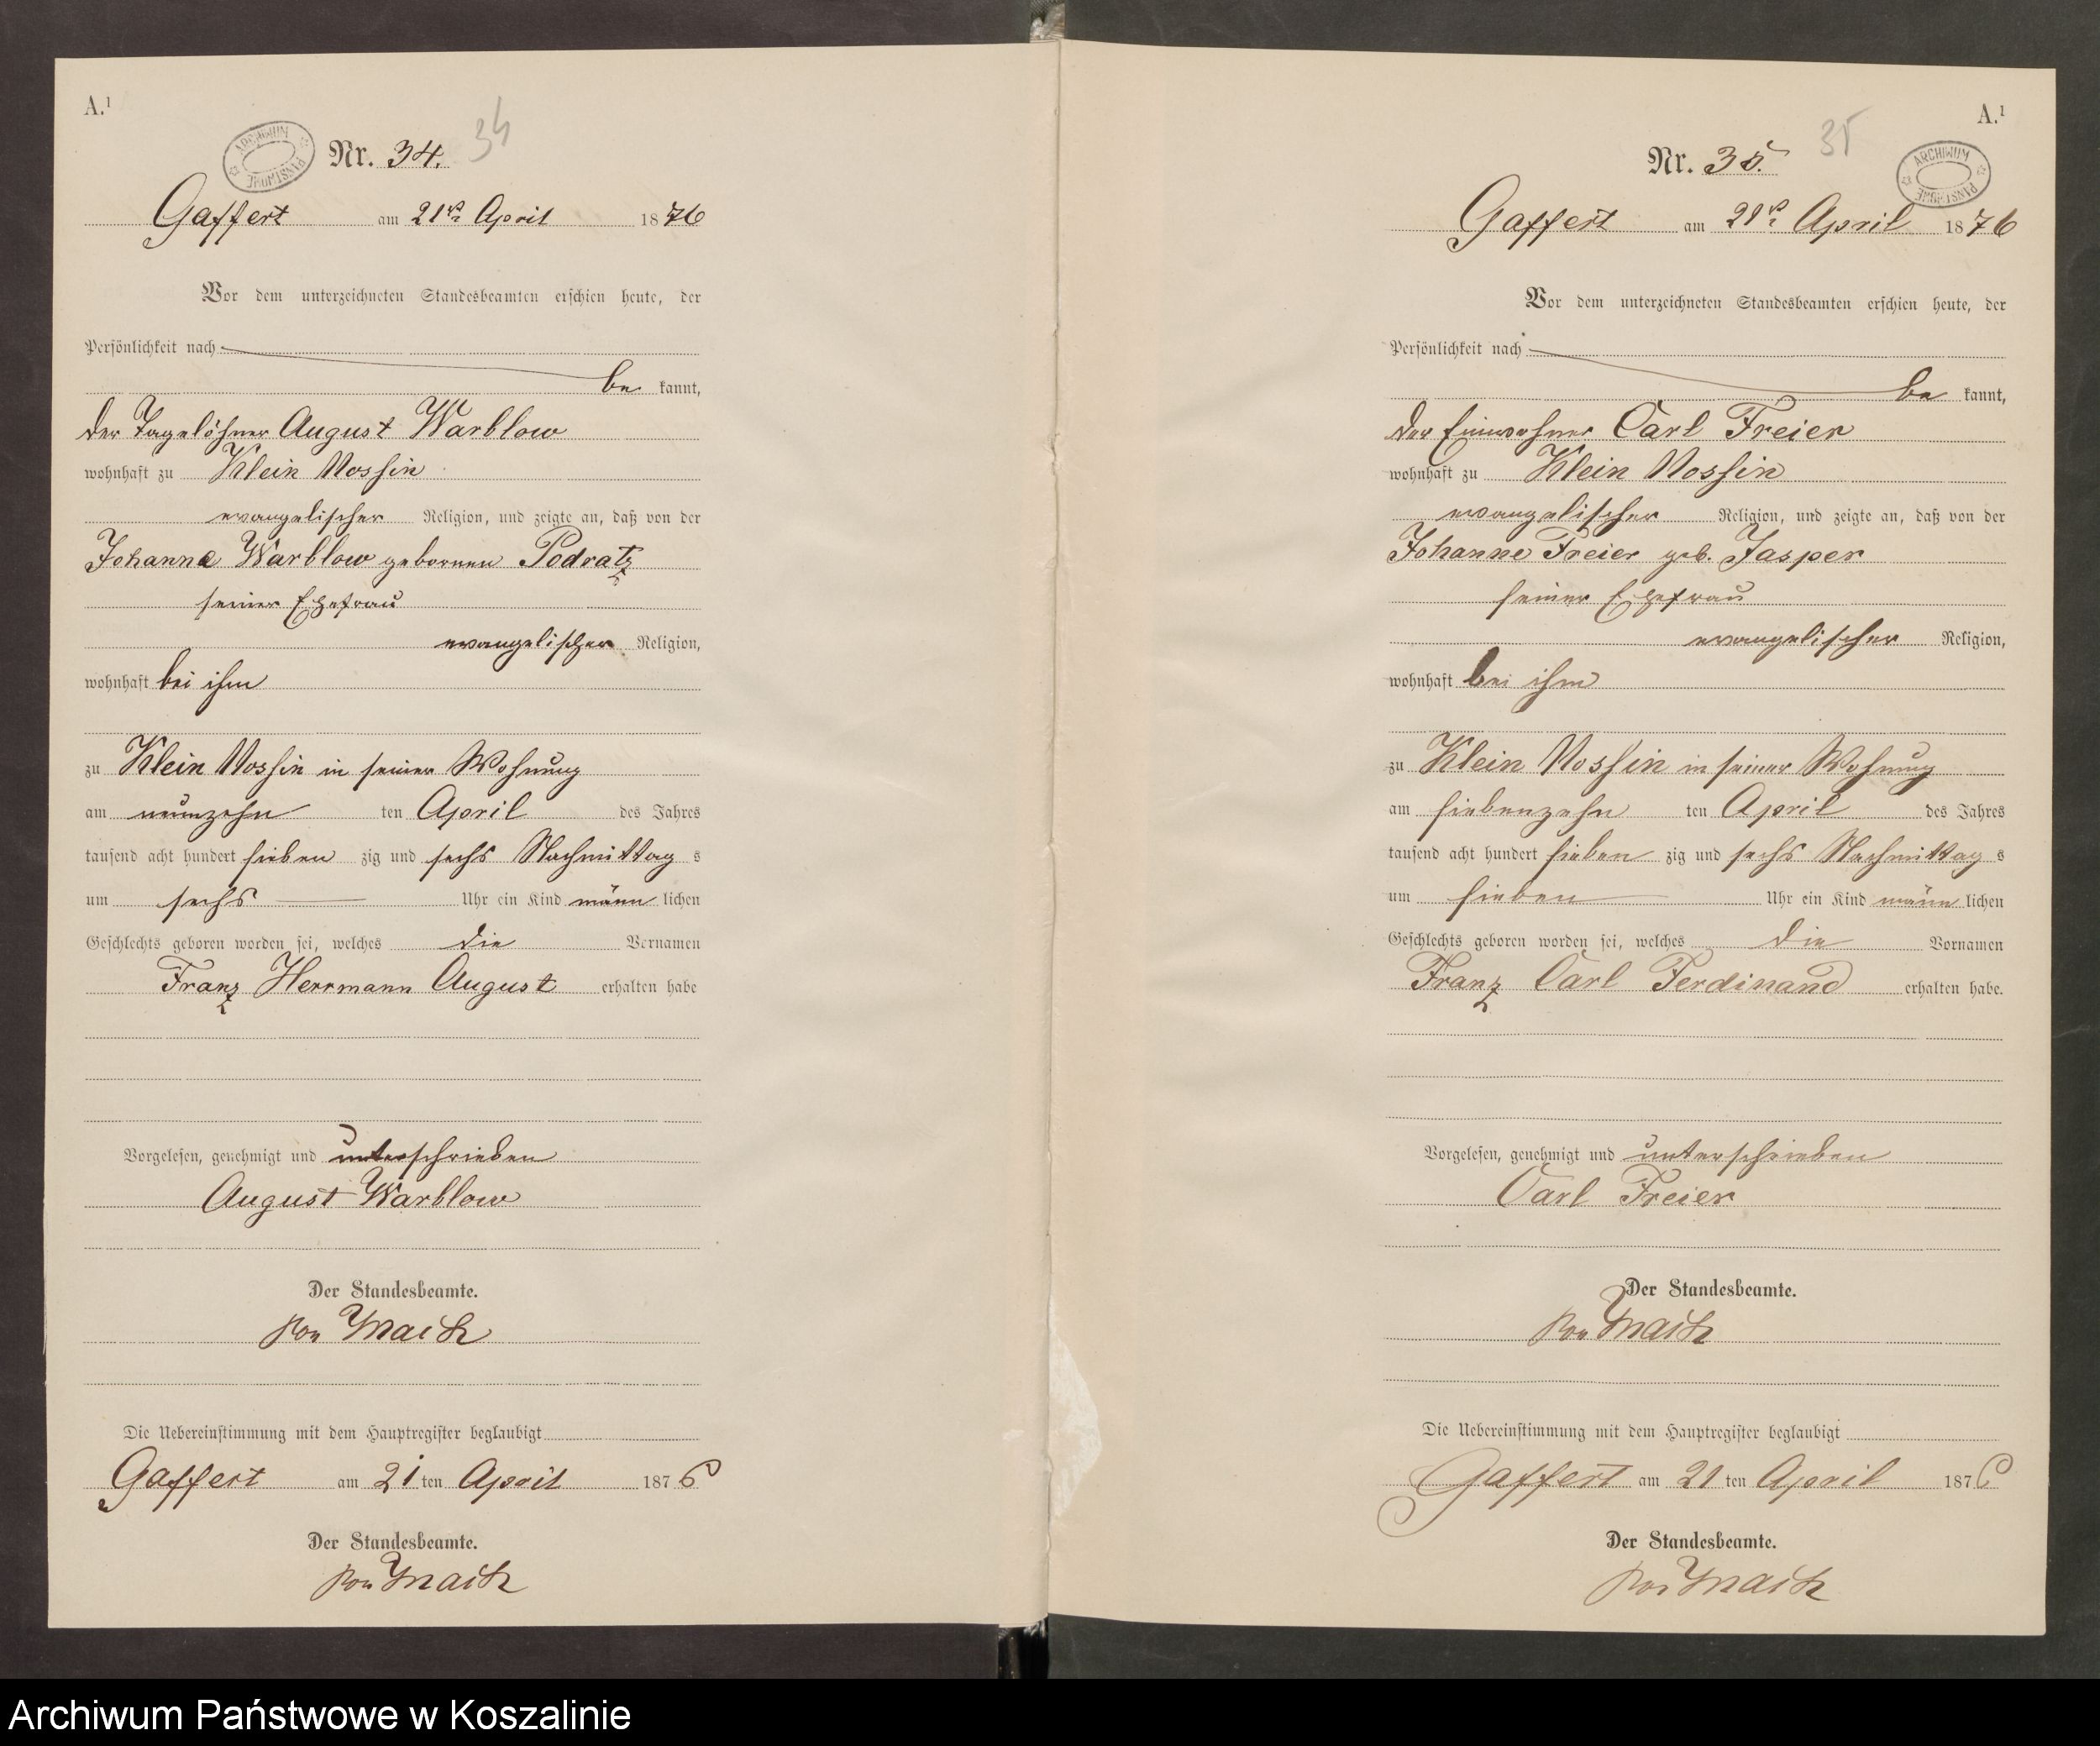 A.¹
ARCHIWUM PAŃSTWOWE
Nr. 34. 34
Gaffert am 21ten April 1876
Vor dem unterzeichneten Standesbeamten erschien heute, der
Persönlichkeit nach
be kannt,
der Tagelöhner August Warblow
wohnhaft zu Klein Nossin
evangelischer Religion, und zeigte an, daß von der
Johanne Warblow geborenen Podratz
seiner Ehefrau
evangelischer Religion,
wohnhaft bei ihm
zu Klein Nossin in seiner Wohnung
am neunzehn ten April des Jahres
tausend acht hundert sieben zig und sechs Nachmittag s
um sechs Uhr ein Kind männ lichen
Geschlechts geboren worden sei, welches die Vornamen
Franz Herrmann August erhalten habe
Vorgelesen, genehmigt und unterschrieben
August Warblow
Der Standesbeamte.
von Mach
Die Uebereinstimmung mit dem Hauptregister beglaubigt
Gaffert am 21 ten April 1876
Der Standesbeamte.
von Mach
A.¹
ARCHIWUM PAŃSTWOWE
Nr. 35. 35
Gaffert am 21ten April 1876
Vor dem unterzeichneten Standesbeamten erschien heute, der
Persönlichkeit nach
be kannt,
der Einwohner Carl Freier
wohnhaft zu Klein Nossin
evangelischer Religion, und zeigte an, daß von der
Johanne Freier geb. Jasper
seiner Ehefrau
evangelischer Religion,
wohnhaft bei ihm
zu Klein Nossin in seiner Wohnung
am siebenzehn ten April des Jahres
tausend acht hundert sieben zig und sechs Nachmittag s
um sieben Uhr ein Kind männ lichen
Geschlechts geboren worden sei, welches die Vornamen
Franz Carl Ferdinand erhalten habe.
Vorgelesen, genehmigt und unterschrieben
Carl Freier
Der Standesbeamte.
von Mach
Die Uebereinstimmung mit dem Hauptregister beglaubigt
Gaffert am 21 ten April 1876
Der Standesbeamte.
von Mach
Archiwum Państwowe w Koszalinie